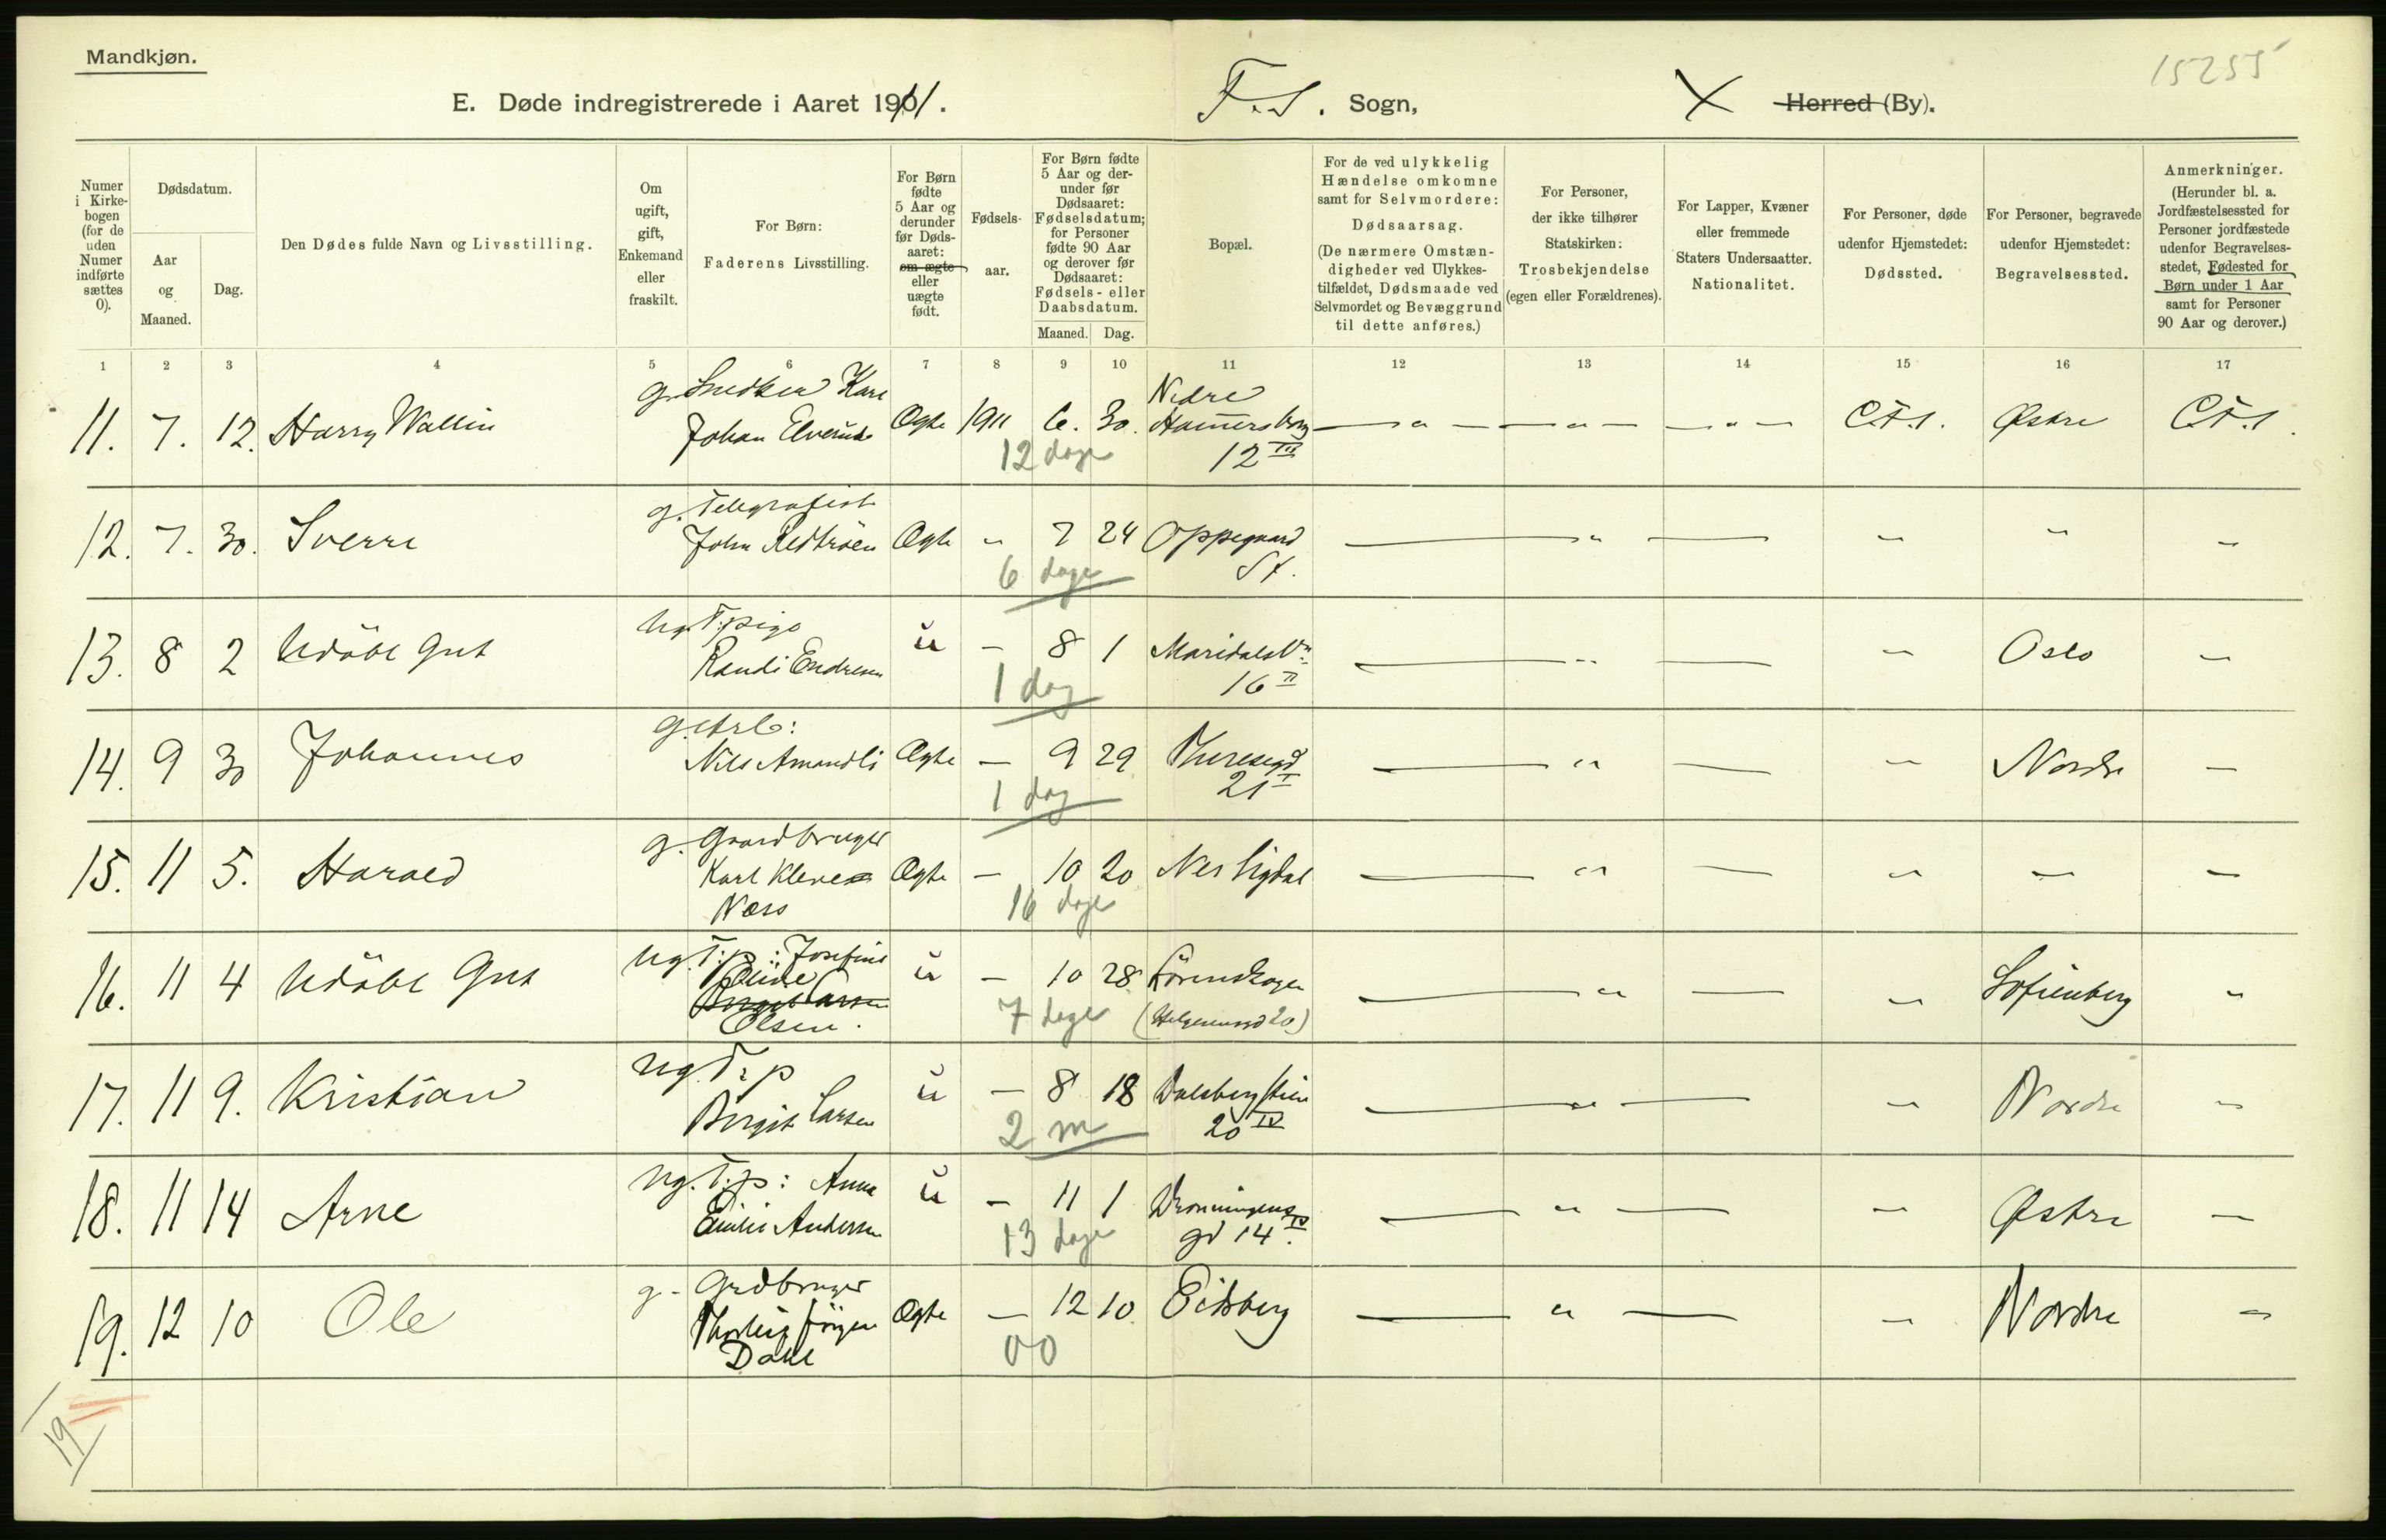 Mandkjøn.
15255
E. Døde indregistrerede i Aaret 1911.
F.S. Sogn,
X Herred (By).
Numer i Kirkebogen (for de uden Numer indførte sættes 0).
Dødsdatum.
Aar og Maaned.
Dag.
Den Dødes fulde Navn og Livsstilling.
Om ugift, gift, Enkemand eller fraskilt.
For Børn: Faderens Livsstilling.
For Børn fødte 5 Aar og derunder før Dødsaaret: om ægte eller uægte født.
Fødselsaar.
For Børn fødte 5 Aar og derunder før Dødsaaret: Fødselsdatum; for Personer fødte 90 Aar og derover før Dødsaaret: Fødsels- eller Daabsdatum.
Maaned. Dag.
Bopæl.
For de ved ulykkelig Hændelse omkomne samt for Selvmordere: Dødsaarsag. (De nærmere Omstændigheder ved Ulykkestilfældet, Dødsmaade ved Selvmordet og Bevæggrund til dette anføres.)
For Personer, der ikke tilhører Statskirken: Trosbekjendelse (egen eller Forældrenes).
For Lapper, Kvæner eller fremmede Staters Undersaatter. Nationalitet.
For Personer, døde udenfor Hjemstedet: Dødssted.
For Personer, begravede udenfor Hjemstedet: Begravelsessted.
Anmerkninger. (Herunder bl. a. Jordfæstelsessted for Personer jordfæstede udenfor Begravelsesstedet, Fødested for Børn under 1 Aar samt for Personer 90 Aar og derover.)
1 2 3 4 5 6 7 8 9 10 11 12 13 14 15 16 17
g. Snedker Karl Nedre
11. 7. 12. Harry Wallin Johan Elverude Ægte 1911 6. 30. Hammersborg — " — — " — — " — Østre
12 dage 12 III
g. Telegrafist
12. 7. 30. Sverre John Redbröen Ægte " 7 24 Oppegaard — " — " " "
6 dage St.
ug. T:pige
13. 8 2 Udöbt Gut Randi Endresen u — 8 1 Maridalsvn — " — " Oslo "
1 dag 16 II
g. Arb:
14. 9 30 Johannes Nils Amundli Ægte — 9 29 Theresegd — " — " Nordre —
1 dag 21 I
g. Gaardbruger
15. 11 5. Harald Karl Kleve Ægte — 10 20 Nes Sigdal — " — " — —
Næss 16 dage
ug. T:p: Josefine
16. 11 4 Udöbt Gut u — 10 28 Lörenskogen — " — " Sofienberg "
Olsen. 7 dage (Helgesensgd 20)
ug. T:p
17. 11 9. Kristian Birgit Larsen u — 8 18 Dalsbergstien — " — " Nordre "
2 m 20 IV
ug. T:p: Anna
18. 11 14 Arne Emilie Andersen u — 11 1 Dronningens — " — " Østre —
13 dage gd 14 IV.
g. Grdbruger
19. 12 10 Ole Ægte — 12 10. Eidsberg — " — " Nordre "
Dahl 00
19